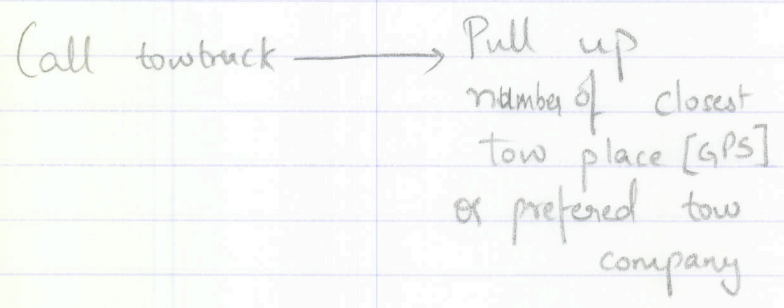 Call towtruck → Pull up
number of closest
tow place [GPS]
or prefered tow
company